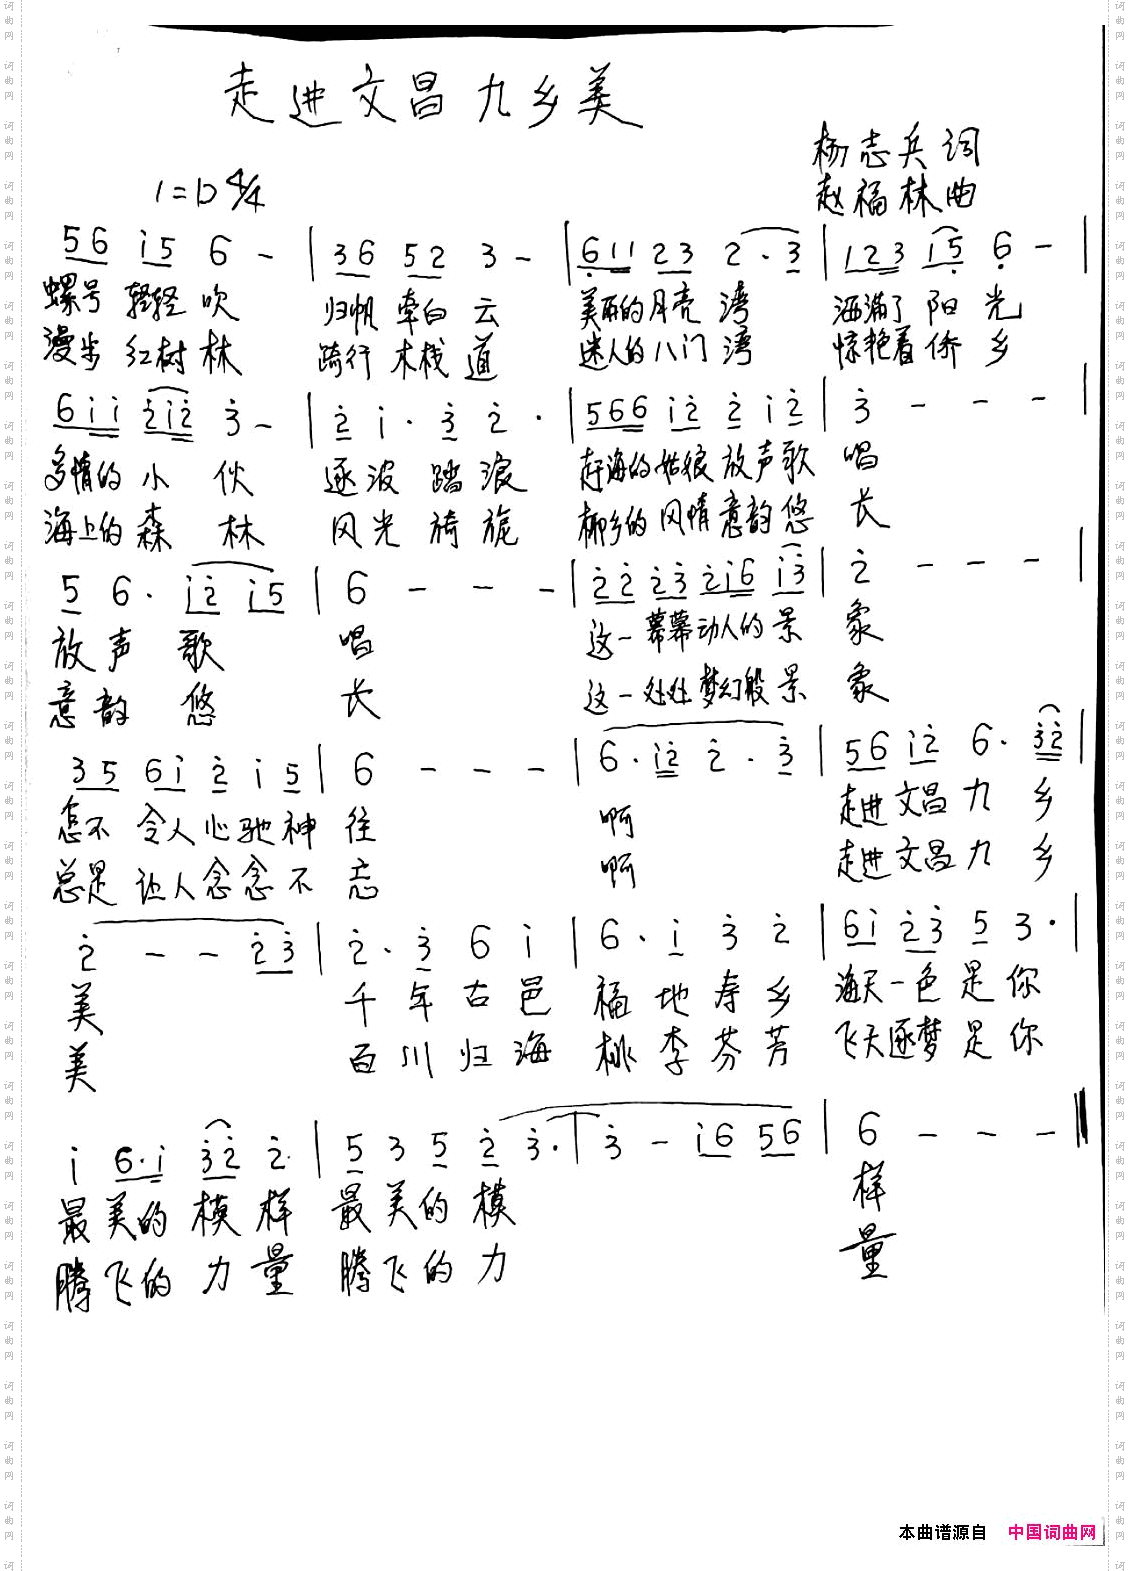 走进文昌九乡美
杨志兵词
1=D 4/4
赵福林曲
5 6 i 5 6 - | 3 6 5 2 3 - | 6 1 1 2 3 2 · 3 | 1 2 3 1 5 6 - |
螺号 轻轻 吹 归帆 牵白 云 美丽的月亮 湾 洒满了 阳 光
漫步 红树 林 踏行 木栈 道 迷人的八门 湾 惊艳着 侨 乡
6 i i 2 i 2 3 - | 2 i · 3 2 · | 5 6 6 i 2 2 i 2 | 3 - - - |
多情的 小 伙 逐波 踏浪 赶海的姑娘 放声歌 唱
海上的 森 林 风光 旖旎 椰乡的 风情 意韵 悠 长
5 6 · i 2 i 5 | 6 - - - | 2 2 2 3 2 i 6 i 3 | 2 - - - |
放声 歌 唱 这一幕幕动人的 景 象
意韵 悠 长 这一处处梦幻般 景 象
3 5 6 i 2 i 5 | 6 - - - | 6 · i 2 2 · 3 | 5 6 i 2 6 · 3 2 |
怎不 令人心驰神 往 啊 走进 文昌 九 乡
总是 让人念念不 忘 啊 走进 文昌 九 乡
2 - - 2 3 | 2 · 3 6 i | 6 · i 3 2 | 6 i 2 3 5 3 · |
美 千年古邑 福地寿乡 海天一色 是 你
美 百川归海 桃李芬芳 飞天逐梦 是 你
i 6 · i 3 2 2 · | 5 3 5 2 3 · | 3 - i 6 5 6 | 6 - - - ‖
最美的 模样 最美的 模 样
腾飞的 力量 腾飞的 力 量
本曲谱源自 中国词曲网